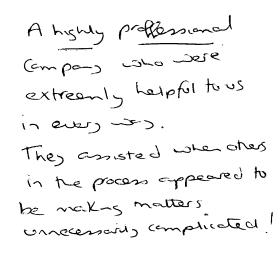 A highly proffessional
Company who were
extreemly helpful to us
in every way.
They assisted when others
in the process appeared to
be making matters
unnecessarily complicated!